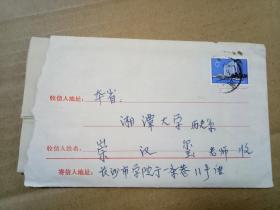 收信人地址： 本省
湘潭大学 历史系
收信人姓名： 崇汉玺 老师 收
寄信人地址： 长沙市学院子一条巷11号